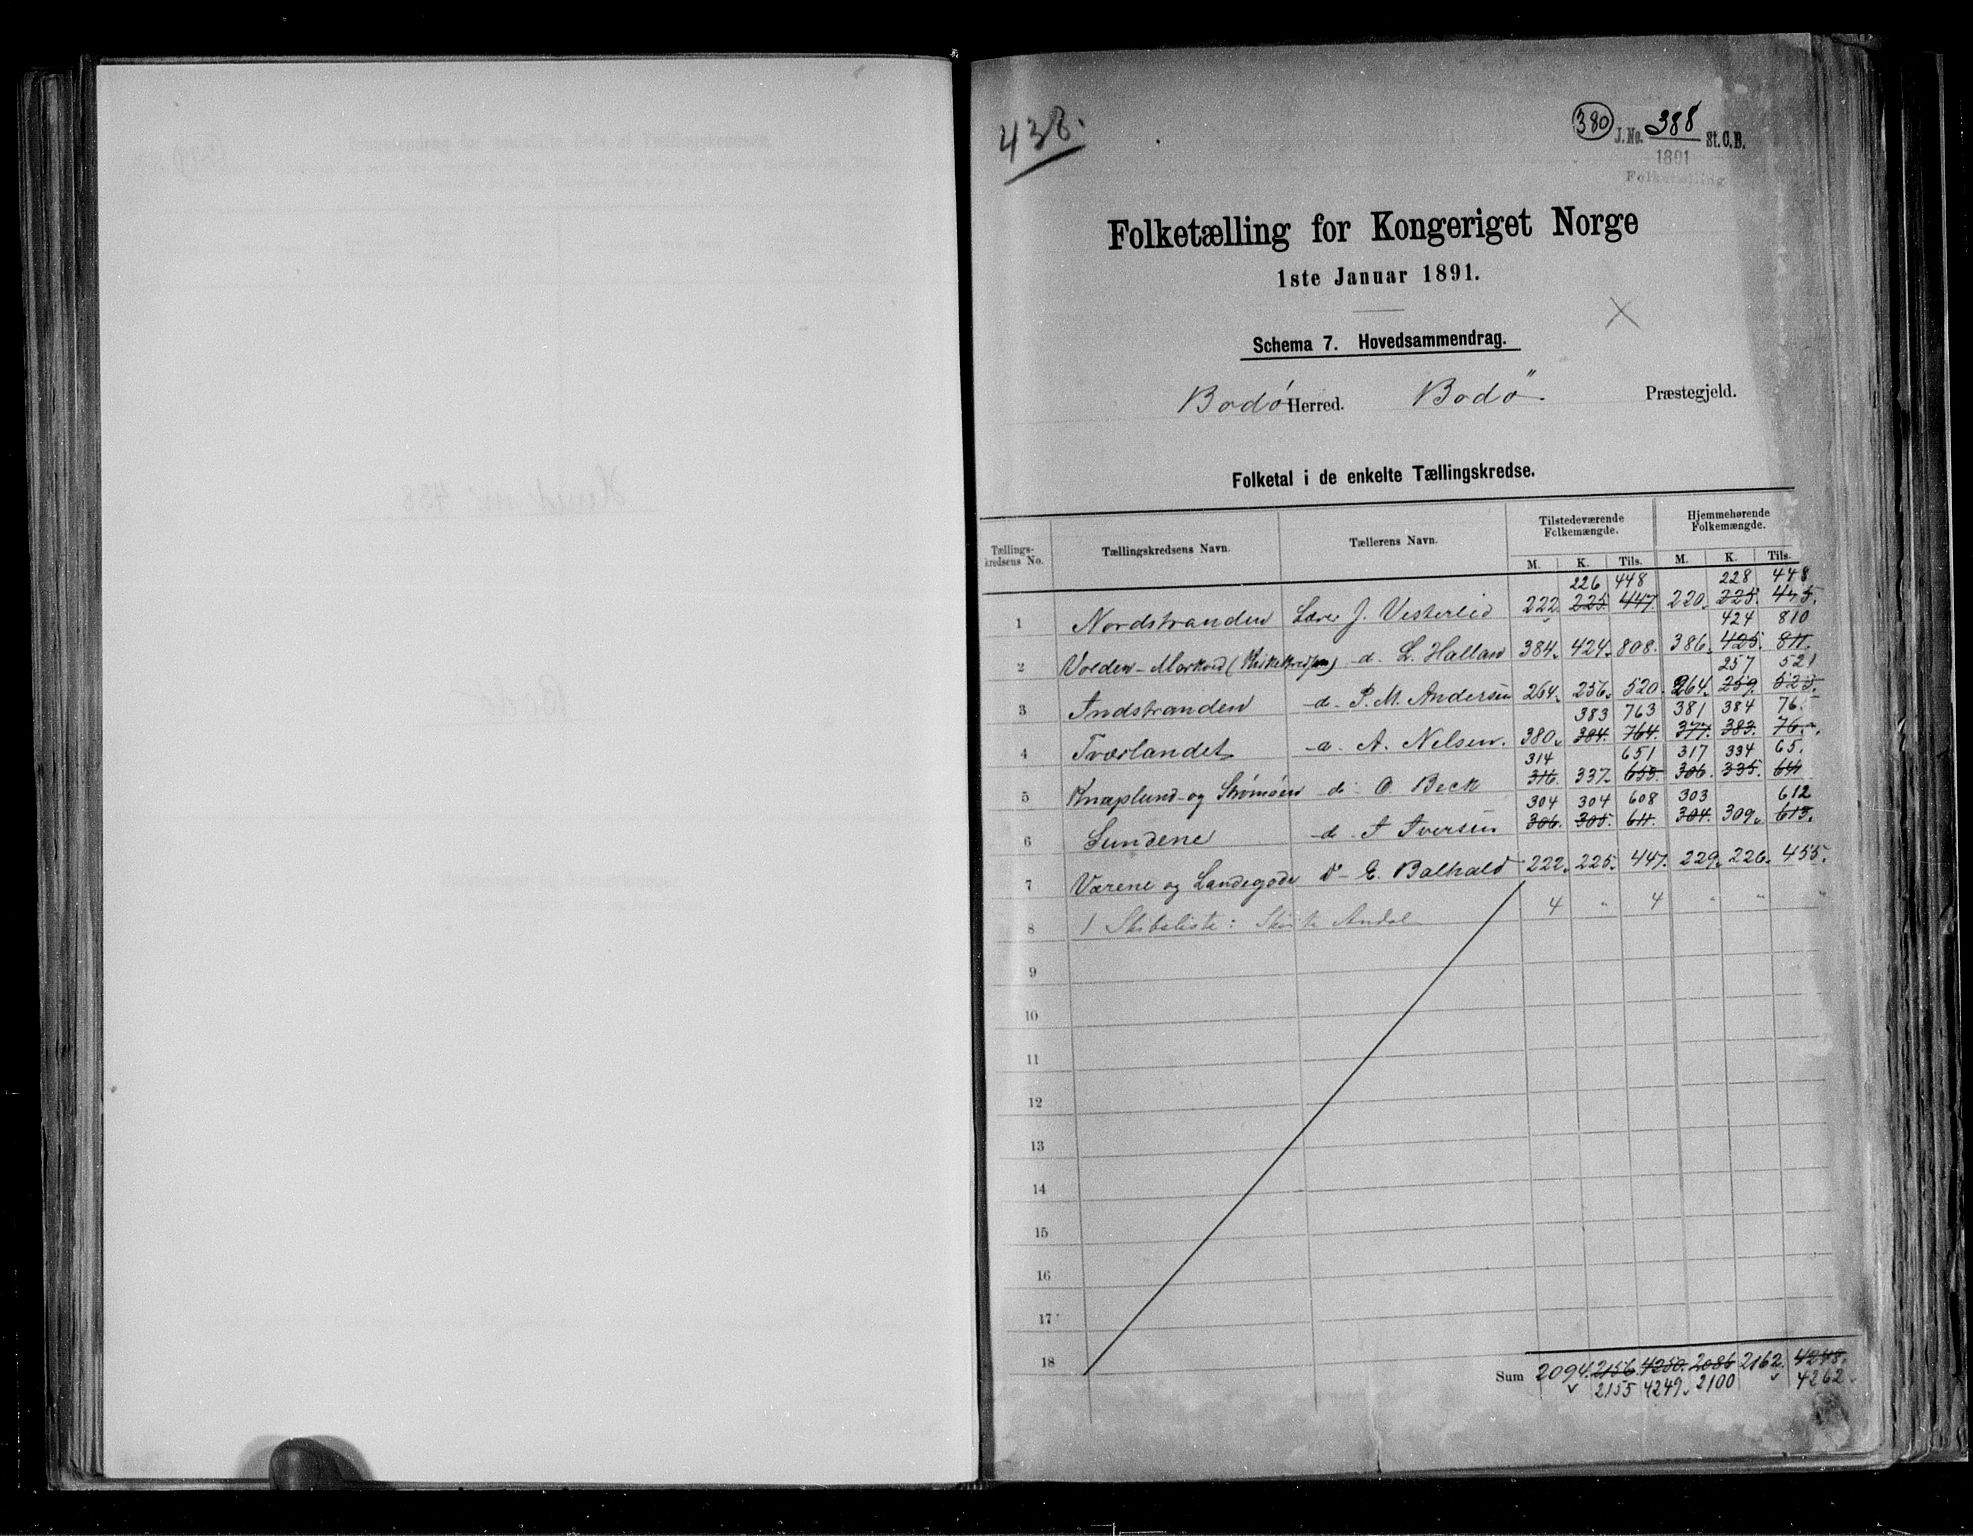 438.
380
J. No. 388 St. C. B.
1891
Folketælling
Folketælling for Kongeriget Norge
1ste Januar 1891.
Schema 7. Hovedsammendrag.
Bodø Herred. Bodø Præstegjeld.
Folketal i de enkelte Tællingskredse.
Tællings-kredsens No. Tællingskredsens Navn. Tællerens Navn. Tilstedeværende Folkemængde. Hjemmehørende Folkemængde.
M. K. Tils. M. K. Tils.
226 448 228 448
1 Nordstranden Lærer J. Vesterlid 222 225. 447. 220. 225.
424 810
2 Volden-Markved (Kirkekredsen) d. L. Halland 384. 424. 808. 386. 425. 811.
257 521
3 Indstranden d. P. M. Andersen 264. 256. 520. 264. 259. 523.
383 763 381 384
4 Tverlandet d. A. Nelsen. 380. 384. 764. 377. 383.
314 651 317 334
5 Knaplund og Strømøen d. O. Beck 316. 337. 653. 306. 335. 641
304 304 608 303 612
6 Lundene d. I Iversen 306. 305. 611. 304. 309. 613.
7 Værene og Landegode d E. Balhald 222. 225. 447. 229. 226. 455.
8 1 Skibsliste: 4 " 4 " " "
9
10
11
12
13
14
15
16
17
18
Sum 2094. 2156. 4250. 2086 2162. 4248.
2155 4249. 2100 4262.
Herred nr. 438
Bodø